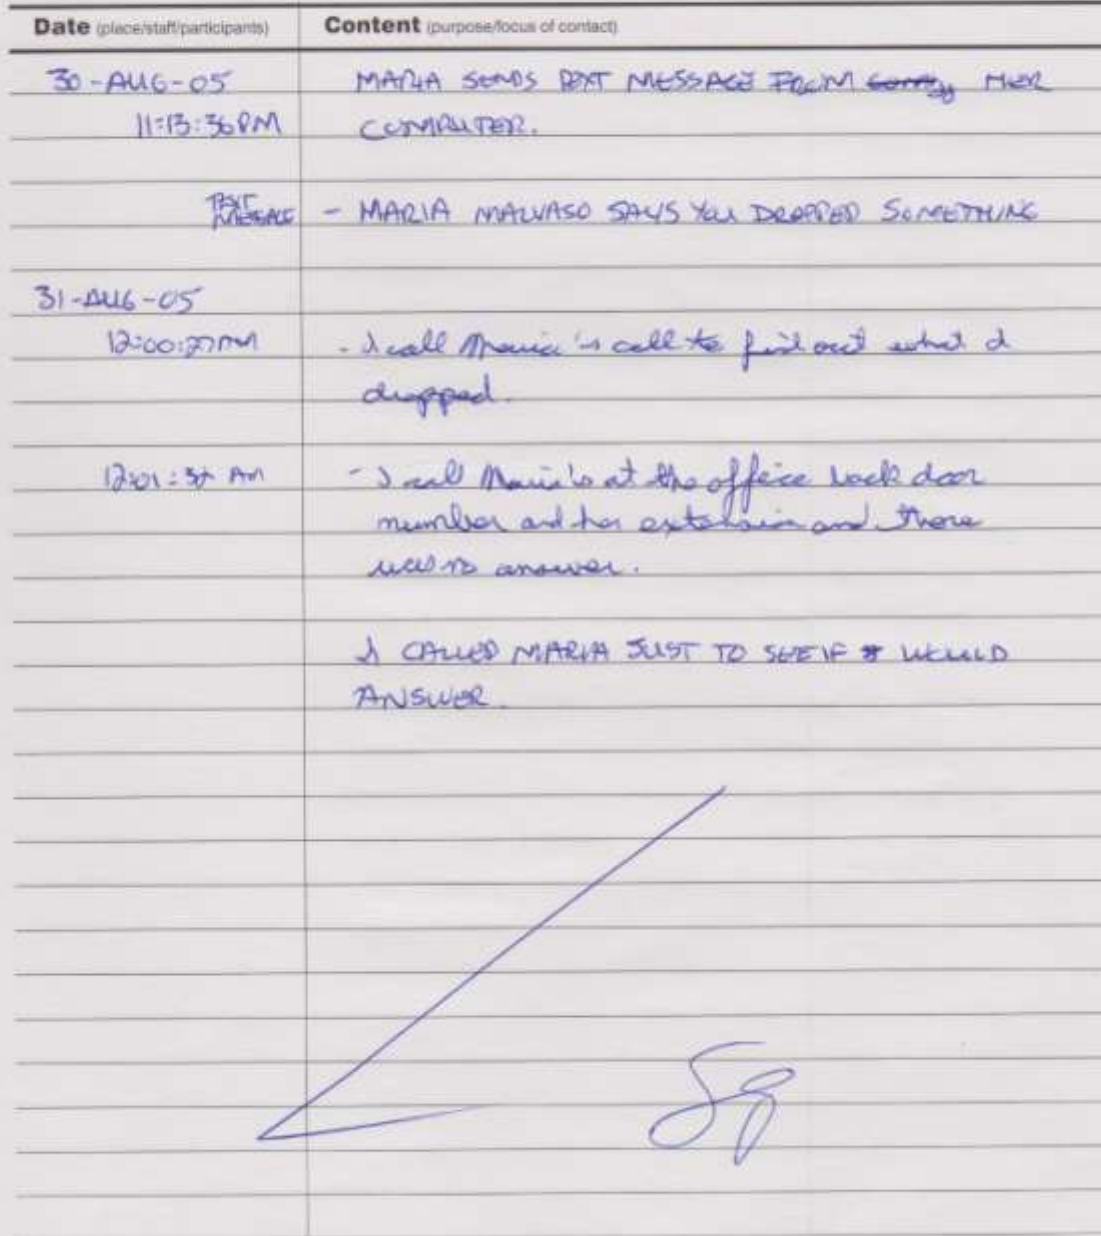 Date (place/staff/participants) Content (purpose/focus of contact)
30-AUG-05 MARIA SENDS TEXT MESSAGE FROM HER
11:13:36PM COMPUTER.
TEXT MESSAGE - MARIA MALVASO SAYS YOU DROPPED SOMETHING
31-AUG-05
12:00:27 AM - I call Maria's cell to find out what I
dropped.
12:01: AM - I call Maria's at the office back door
number and her extension and there
was no answer.
I CALLED MARIA JUST TO SEE IF WOULD
ANSWER.